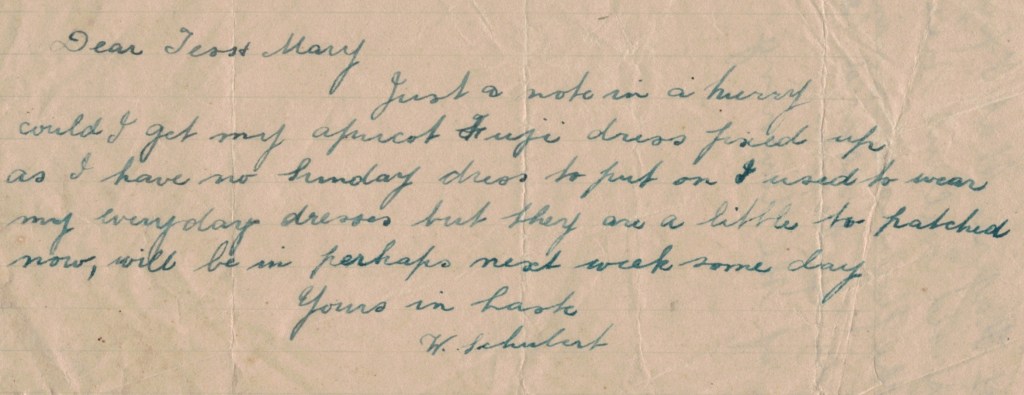 Dear Tess & Mary
Just a note in a hurry
could I get my apricot Fuji dress fixed up
as I have no Sunday dress to put on I used to wear
my everyday dresses but they are a little to patched
now, will be in perhaps next week some day
Yours in haste
W. Schubert